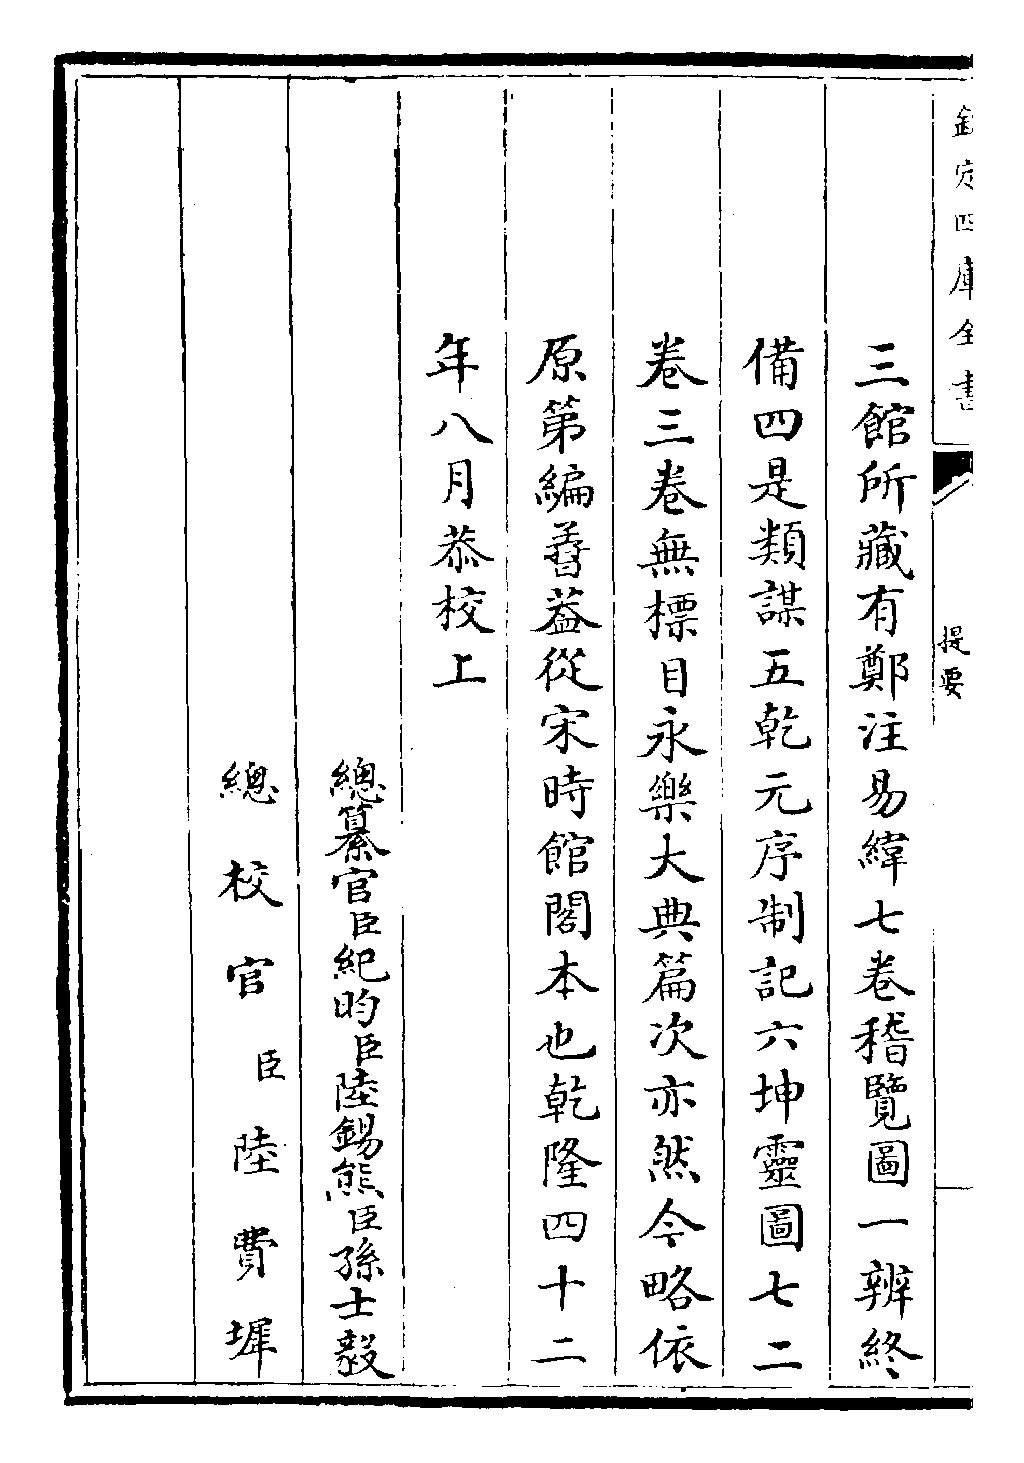 欽定四庫全書
提要
三館所藏有鄭注易緯七卷稽覽圖一辨終
備四是類謀五乾元序制記六坤靈圖七二
卷三卷無標目永樂大典篇次亦然今略依
原第編諅葢從宋時館閣本也乾隆四十二
年八月恭校上
總纂官臣紀昀臣陸錫熊臣孫士毅
總校官臣陸費墀